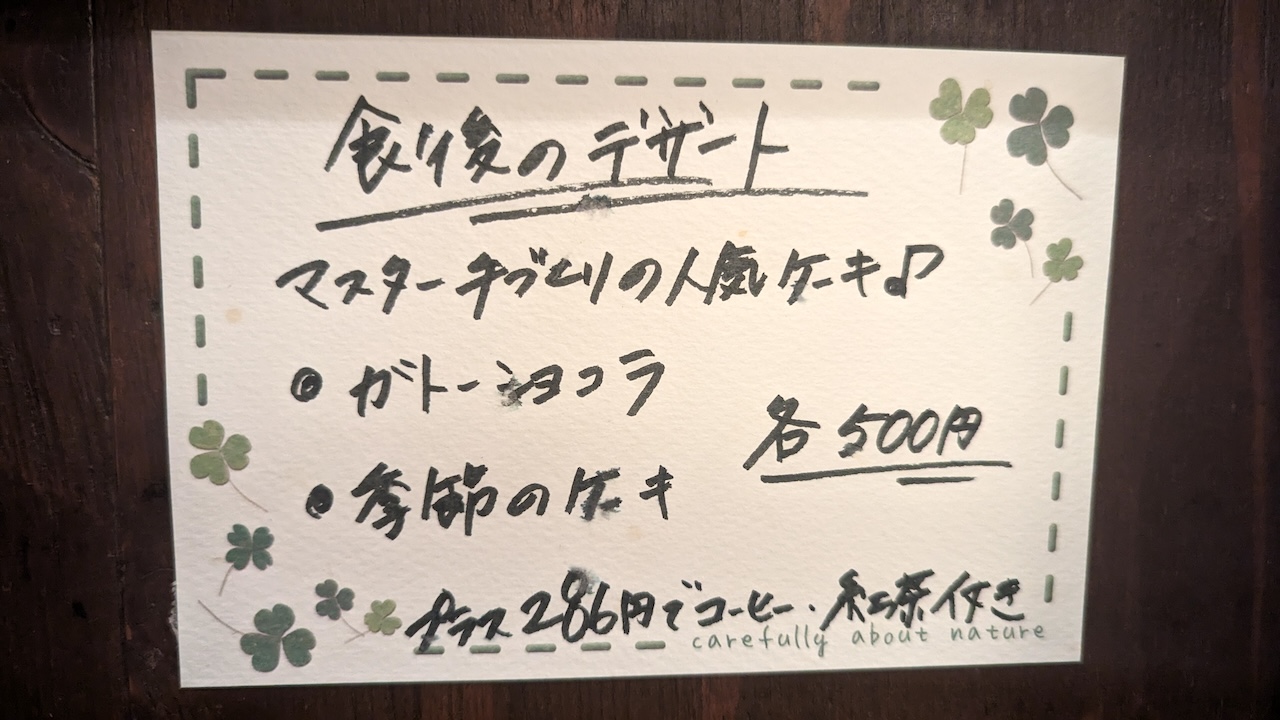 食後のデザート
マスター手づくりの人気ケーキ♪
◎ ガトーショコラ
各500円
● 季節のケーキ
プラス286円でコーヒー・紅茶付き
carefully about nature